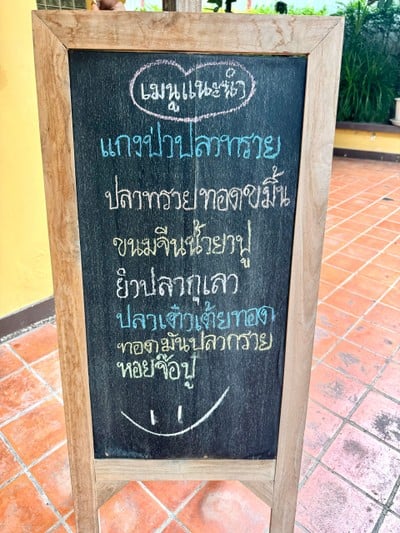 เมนูแนะนำ
แกงป่าปลาทราย
ปลาทรายทอดขมิ้น
ขนมจีนน้ำยาปู
ยำปลากุเลา
ปลาเต๋าเต้ยทอด
ทอดมันปลากราย
หอยจ๊อปู